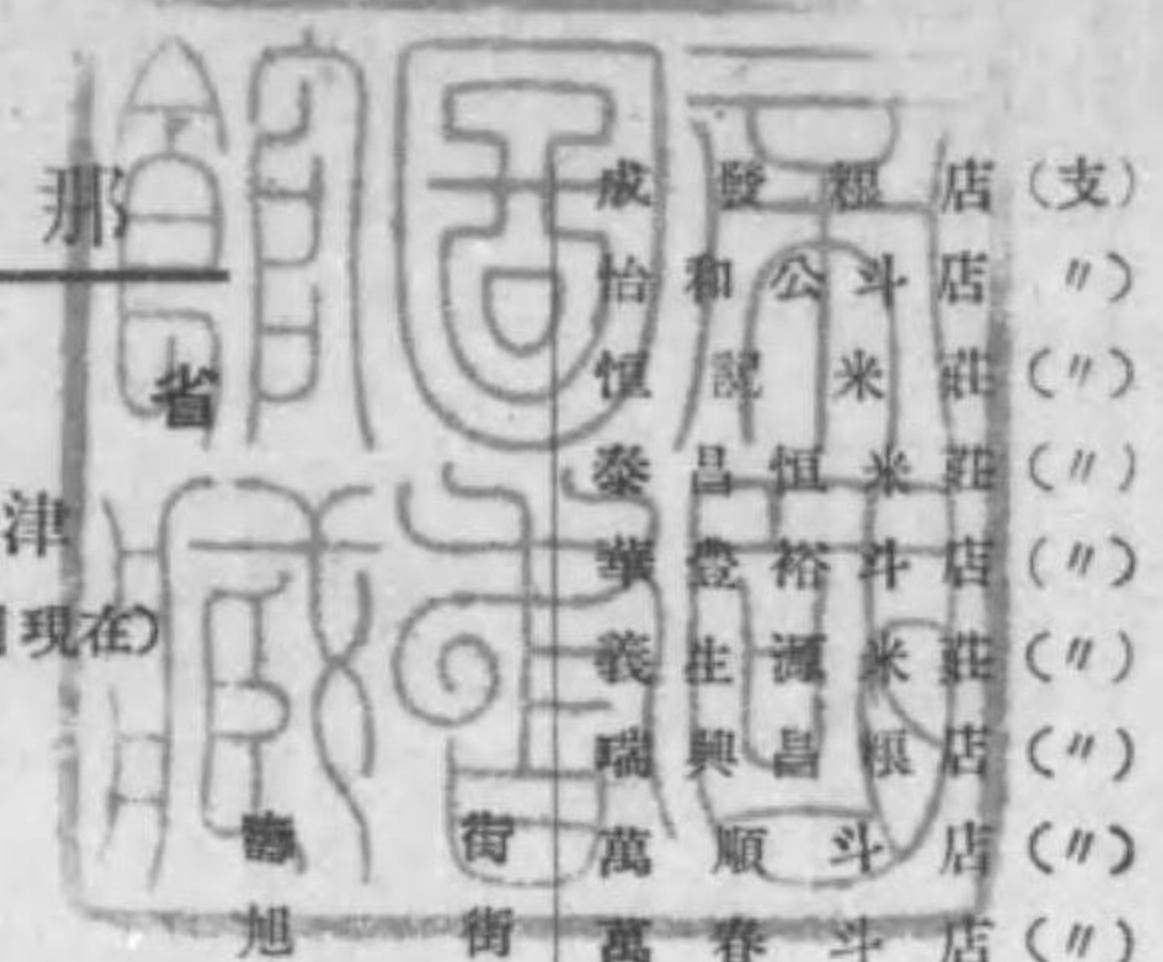 那
省
津
現在)
成發糧店(支)
怡和公斗店 〃)
恒記米莊(〃)
泰昌恒米莊(〃)
華豊裕斗店(〃)
義生源米莊(〃)
瑞興昌粮店(〃)
壽街 萬順斗店(〃)
旭街 萬春斗店(〃)
帝國圖書館藏